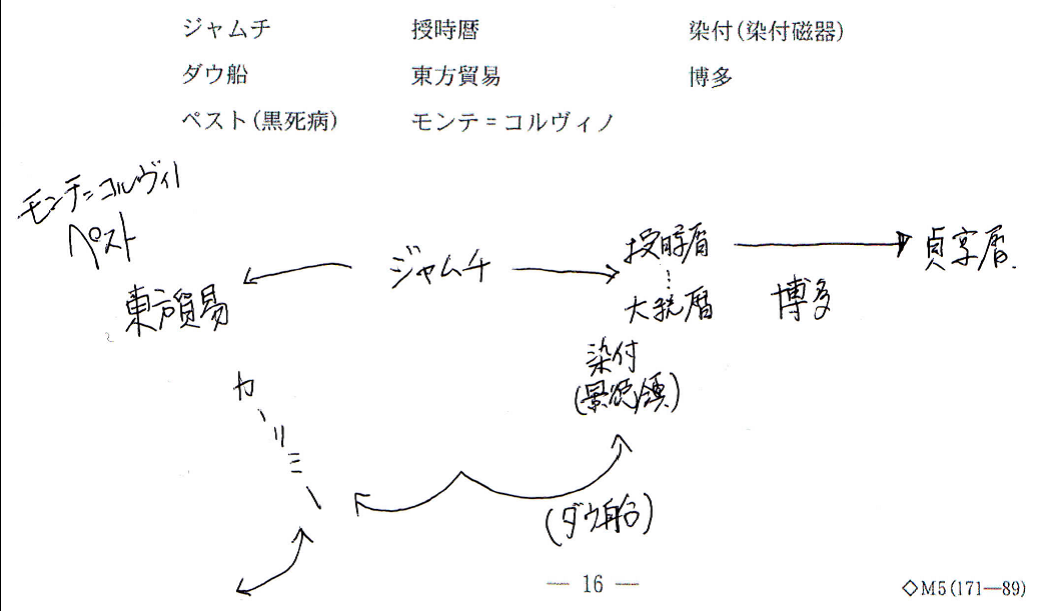 ジャムチ 授時暦 染付(染付磁器)
ダウ船 東方貿易 博多
ペスト(黒死病) モンテ=コルヴィノ
モンテ=コルヴィノ
ペスト
東方貿易
ジャムチ
授時暦
大統暦
貞享暦.
博多
染付
(景徳鎮)
カーリミー
(ダウ船)
― 16 ―
◇M5(171―89)